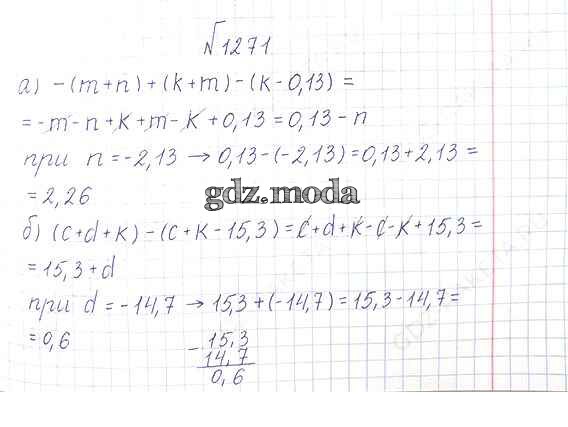 №1271
а) -(m+n)+(k+m)-(k-0,13)=
=-m-n+k+m-k+0,13=0,13-n
при n=-2,13 → 0,13-(-2,13)=0,13+2,13=
=2,26
gdz.moda
б) (c+d+k)-(c+k-15,3)=c+d+k-c-k+15,3=
=15,3+d
при d=-14,7 → 15,3+(-14,7)=15,3-14,7=
=0,6
-15,3
14,7
0,6